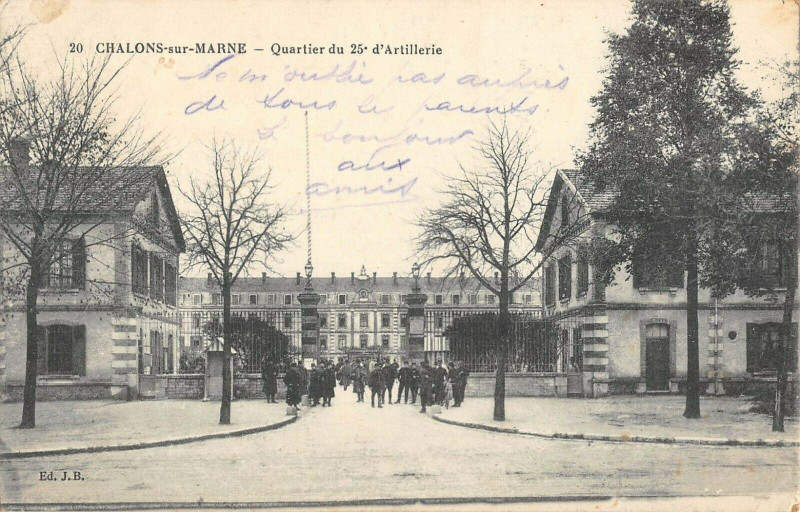 20 CHALONS-sur-MARNE – Quartier du 25e d'Artillerie
Ne m'oublie pas auprès
de tous les parents.
Le bonjour
aux
amis
Ed. J. B.